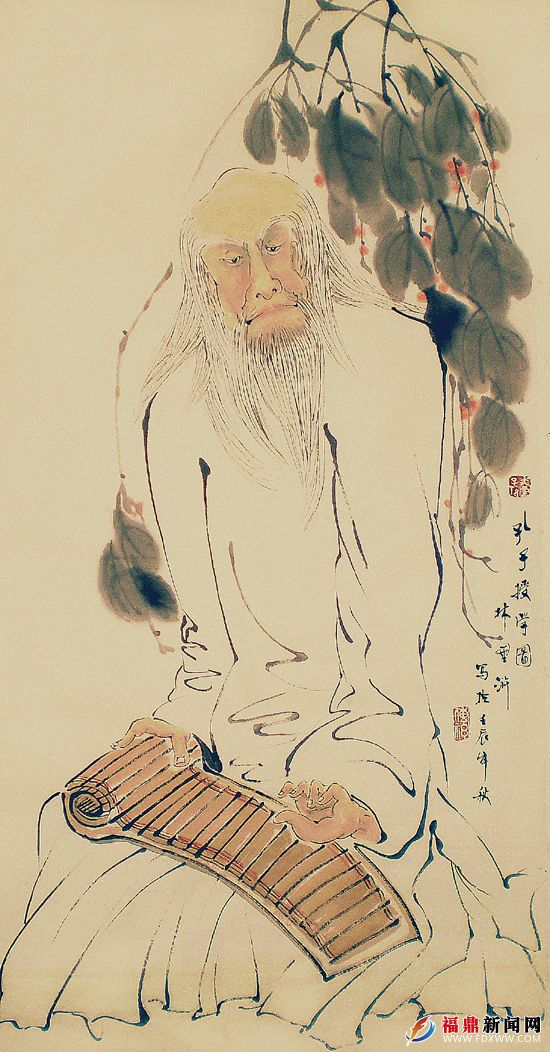 孔子授学圖
林
写於壬辰年秋
福鼎新闻网
WWW.FDXWW.COM